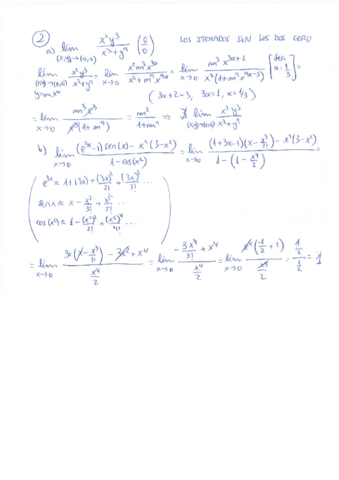 2
a) lim (x,y)→(0,0) x²y³/(x³+y⁹) (0/0) LOS ITERADOS SON LOS DOS CERO
lim (x,y)→(0,0) y=mx^α x²y³/(x³+y⁹) = lim x→0 x²m³x^{3α}/(x³+m⁹x^{9α}) = lim x→0 m³x^{3α+2}/(x³(1+m⁹x^{9α-3})) [Sea α=1/3] =
(3α+2=3, 3α=1, α=1/3)
= lim x→0 m³x³/(x³(1+m⁹)) = m³/(1+m⁹) ⇒ ∄ lim (x,y)→(0,0) x²y³/(x³+y⁹)
b) lim x→0 ((e^{3x}-1)sen(x) - x²(3-x²))/(1-cos(x²)) = lim x→0 ((1+3x-1)(x-x³/3!) - x²(3-x²))/(1-(1-x⁴/2)) =
e^{3x} = 1+(3x)+(3x)²/2!+(3x)³/3! ...
sen x = x - x³/3! + x⁵/5! ...
cos(x²) = 1 - (x²)²/2! + (x²)⁴/4! ...
= lim x→0 (3x(x-x³/3!) - 3x²+x⁴)/(x⁴/2) = lim x→0 (-3x⁴/3! + x⁴)/(x⁴/2) = lim x→0 x⁴(-1/2+1)/(x⁴/2) = (1/2)/(1/2) = 1